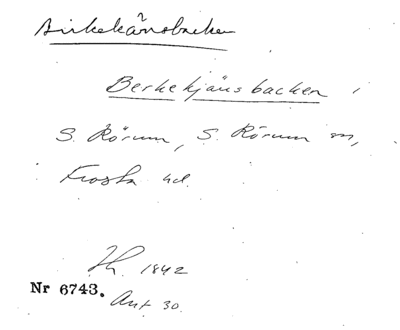 Birkekänsbacken
Berkekjäns backen
S. Rörum, S. Rörum sn,
Frosta hd.
1842
Nr 6743.
Ant 30.